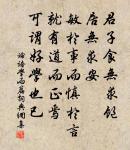 君子食無求飽
居無求安
敏於事而慎於言
就有道而正焉
可謂好學也已
論語學而篇詞典網集